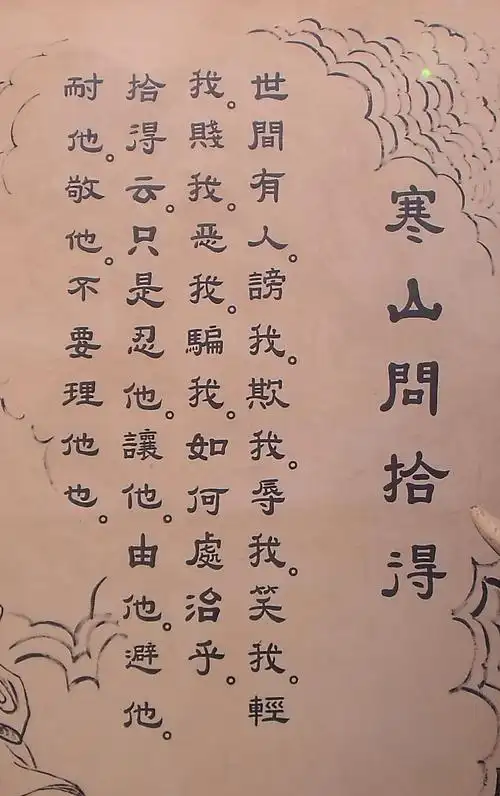 寒山問拾得
世間有人。謗我。欺我。辱我。笑我。輕
我。賤我。恶我。騙我。如何處治乎。
拾得云。只是忍他。讓他。由他。避他。
耐他。敬他。不要理他也。